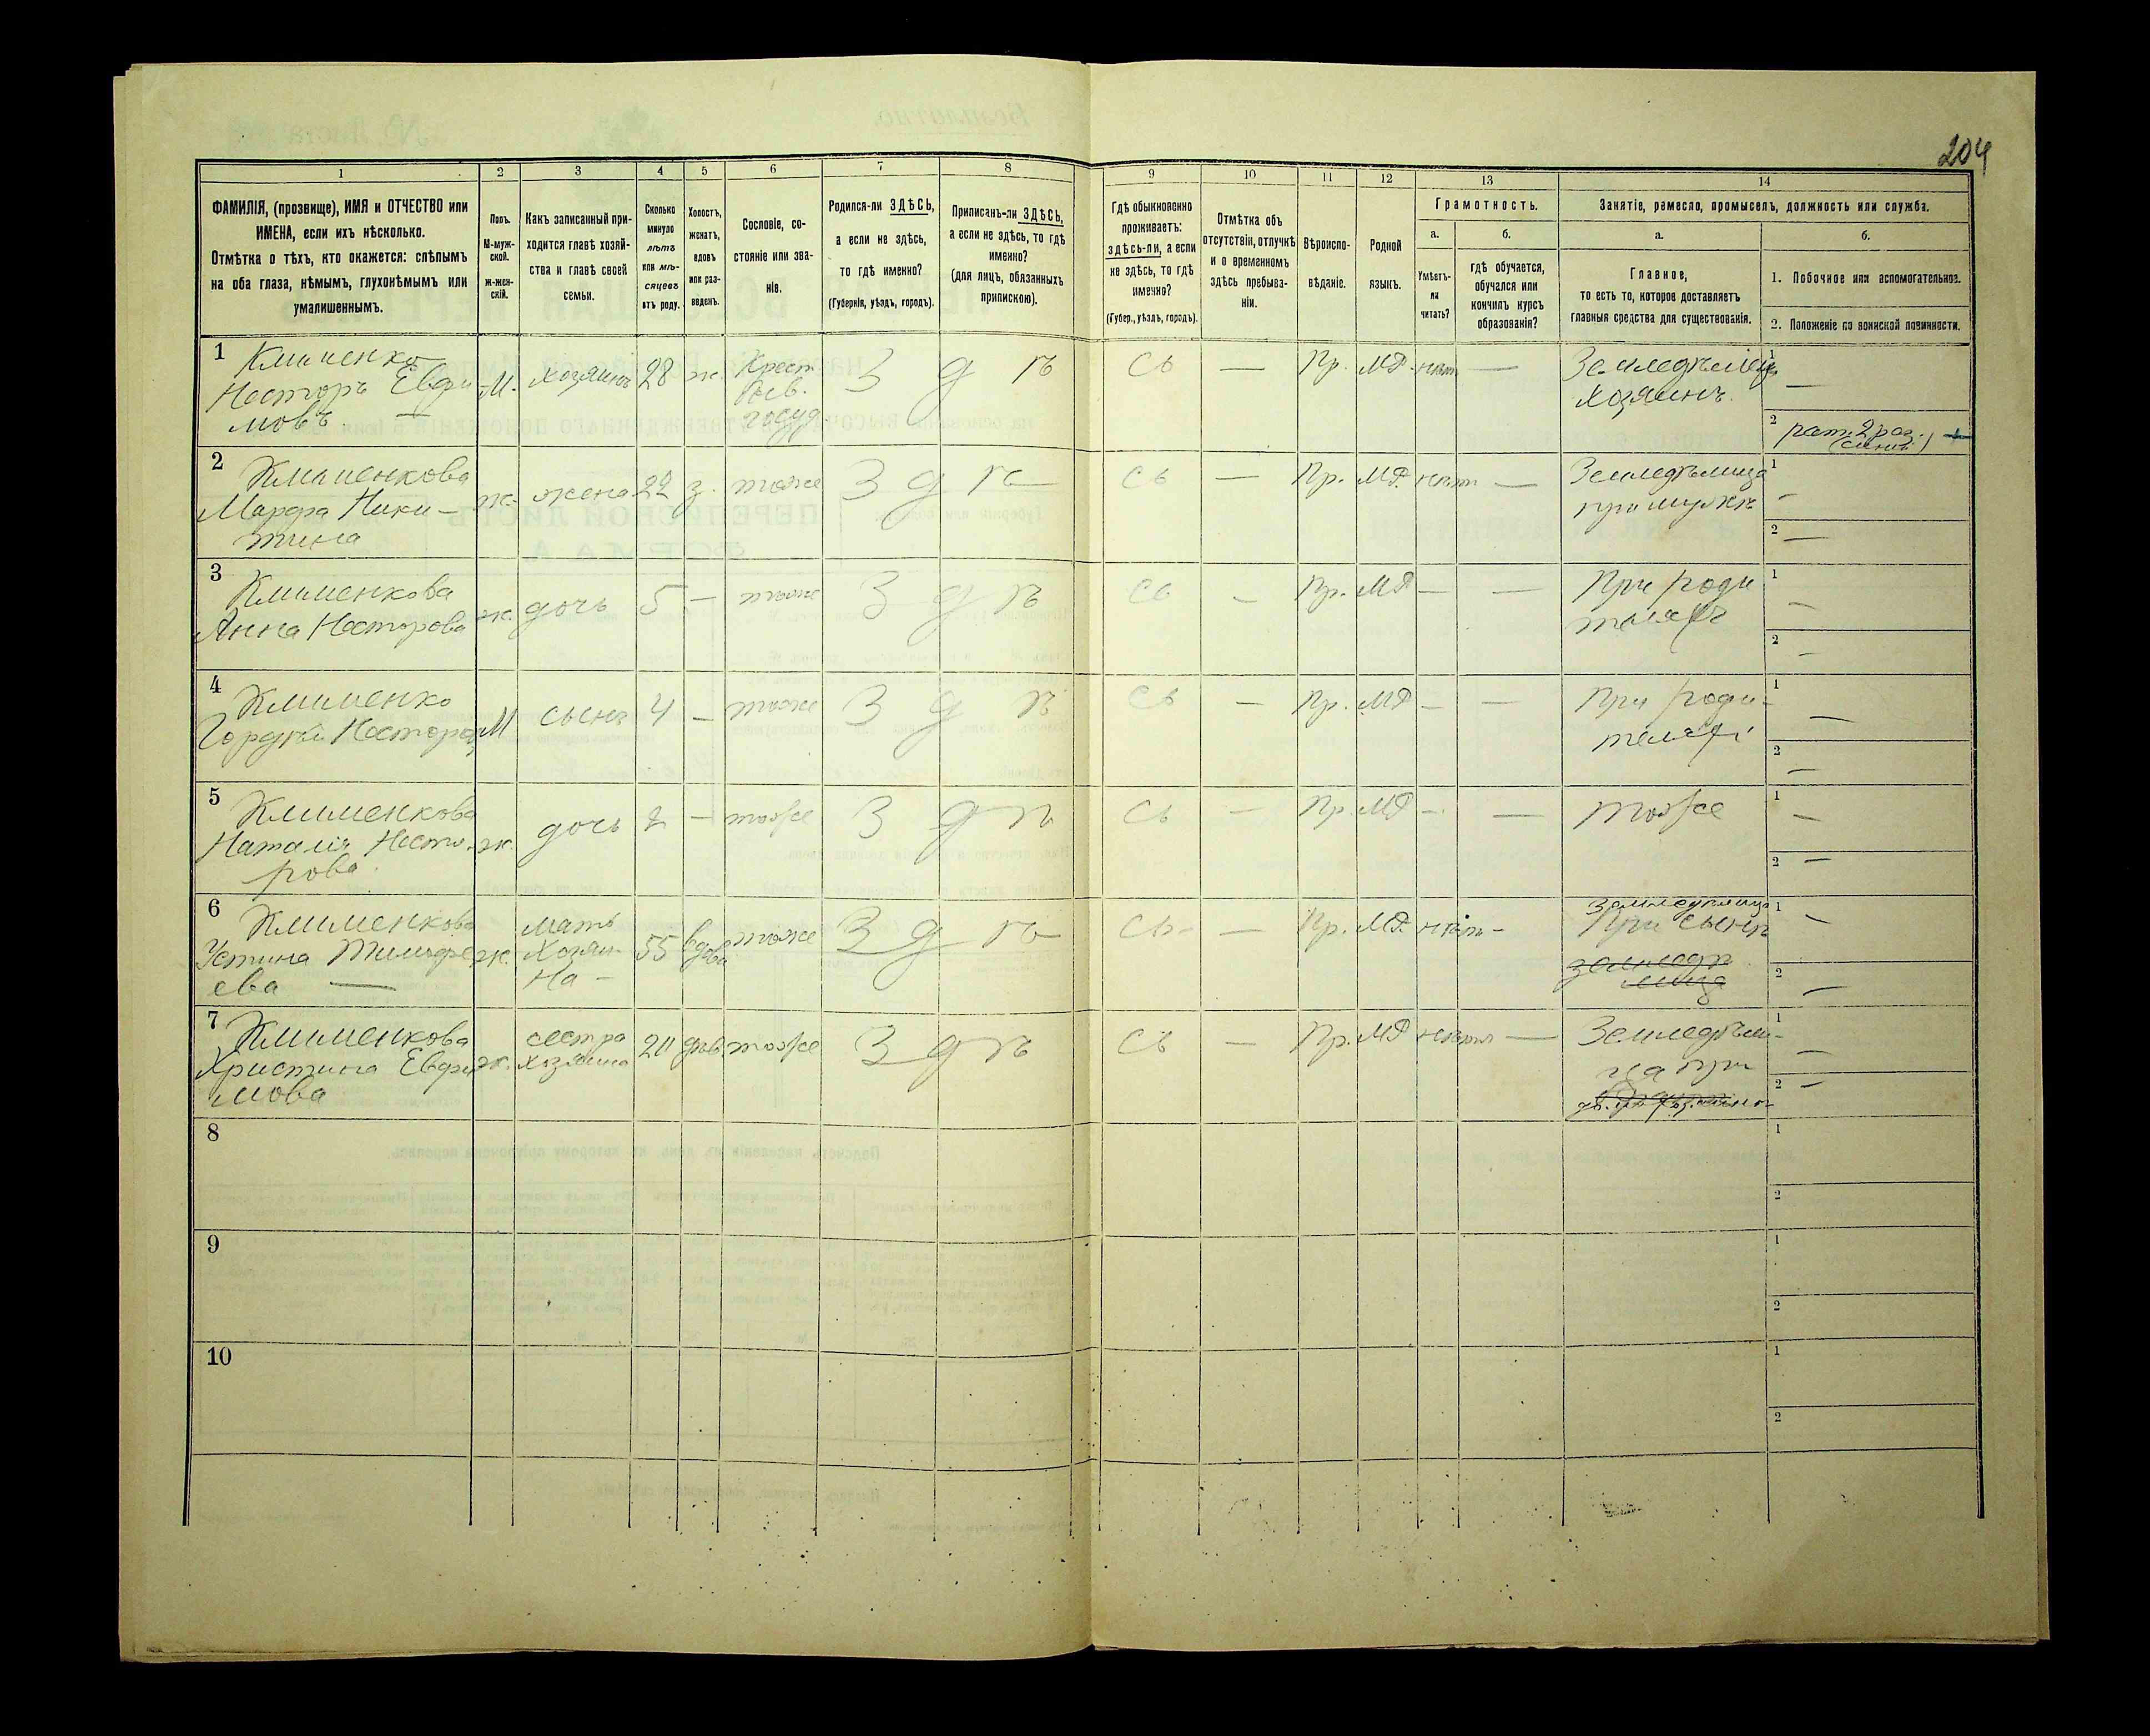 204
1
2
3
4
5
6
7
8
9
10
11
12
13
14
ФАМИЛІЯ, (прозвище), ИМЯ и ОТЧЕСТВО или
ИМЕНА, если ихъ нѣсколько.
Отмѣтка о тѣхъ, кто окажется: слѣпымъ
на оба глаза, нѣмымъ, глухонѣмымъ или
умалишеннымъ.
Полъ.
М-муж-
ской.
ж-жен-
скій.
Какъ записанный при-
ходится главѣ хозяй-
ства и главѣ своей
семьи.
Сколько
минуло
лѣтъ
или мѣ-
сяцевъ
отъ роду.
Холостъ,
женатъ,
вдовъ
или раз-
веденъ.
Сословіе, со-
стояніе или зва-
ніе.
Родился-ли ЗДѢСЬ,
а если не здѣсь,
то гдѣ именно?
(Губернія, уѣздъ, городъ).
Приписанъ-ли ЗДѢСЬ,
а если не здѣсь, то гдѣ
именно?
(для лицъ, обязанныхъ
припискою).
Гдѣ обыкновенно
проживаетъ:
здѣсь-ли, а если
не здѣсь, то гдѣ
именно?
(Губер., уѣздъ, городъ).
Отмѣтка объ
отсутствіи, отлучкѣ
и о временномъ
здѣсь пребыва-
ніи.
Вѣроиспо-
вѣданіе.
Родной
языкъ.
Грамотность.
а.
Умѣетъ-
ли
читать?
б.
гдѣ обучается,
обучался или
кончилъ курсъ
образованія?
Занятіе, ремесло, промыселъ, должность или служба.
а.
Главное,
то есть то, которое доставляетъ
главныя средства для существованія.
б.
1. Побочное или вспомогательное.
2. Положеніе по воинской повинности.
1
Клименко
Несторъ Евфи
мовъ
М.
Хозяинъ
28
ж.
Крест.
госуд.
З д ѣ
сь
—
Пр.
МР.
нѣт
—
Земледѣлецъ
Хозяинъ
1
—
2
рат. 2 раз.
2
Клименкова
Марфа Ники-
тина
ж.
жена
22
з.
тоже
З д ѣ
сь
—
Пр.
МР.
нѣт
—
Земледѣлица
при мужѣ
1
—
2
—
3
Клименкова
Анна Несторова
ж.
дочь
5
—
тоже
З д ѣ
сь
—
Пр.
МР
—
—
При роди
теляхъ
1
—
2
—
4
Клименко
Гордѣй Несторов
М
сынъ
4
—
тоже
З д ѣ
сь
—
Пр.
МР
—
—
При роди-
теляхъ
1
—
2
—
5
Клименкова
Наталія Несто-
рова
ж.
дочь
2
—
тоже
З д ѣ
сь
—
Пр.
МР
—
—
тоже
1
—
2
—
6
Клименкова
Устина Тимофе
ева —
ж.
мать
Хозяи-
на —
55
вдова
тоже
З д ѣ
сь
—
Пр.
МР.
нѣт
—
земледѣлица
При сынѣ
земледѣ
лица
1
—
2
—
7
Клименкова
Христина Евфи
мова
ж.
сестра
хозяина
20
дѣв.
тоже
З д ѣ
сь
—
Пр.
МР
нѣт
—
Земледѣли-
ца при
1
—
2
—
8
1
2
9
1
2
10
1
2